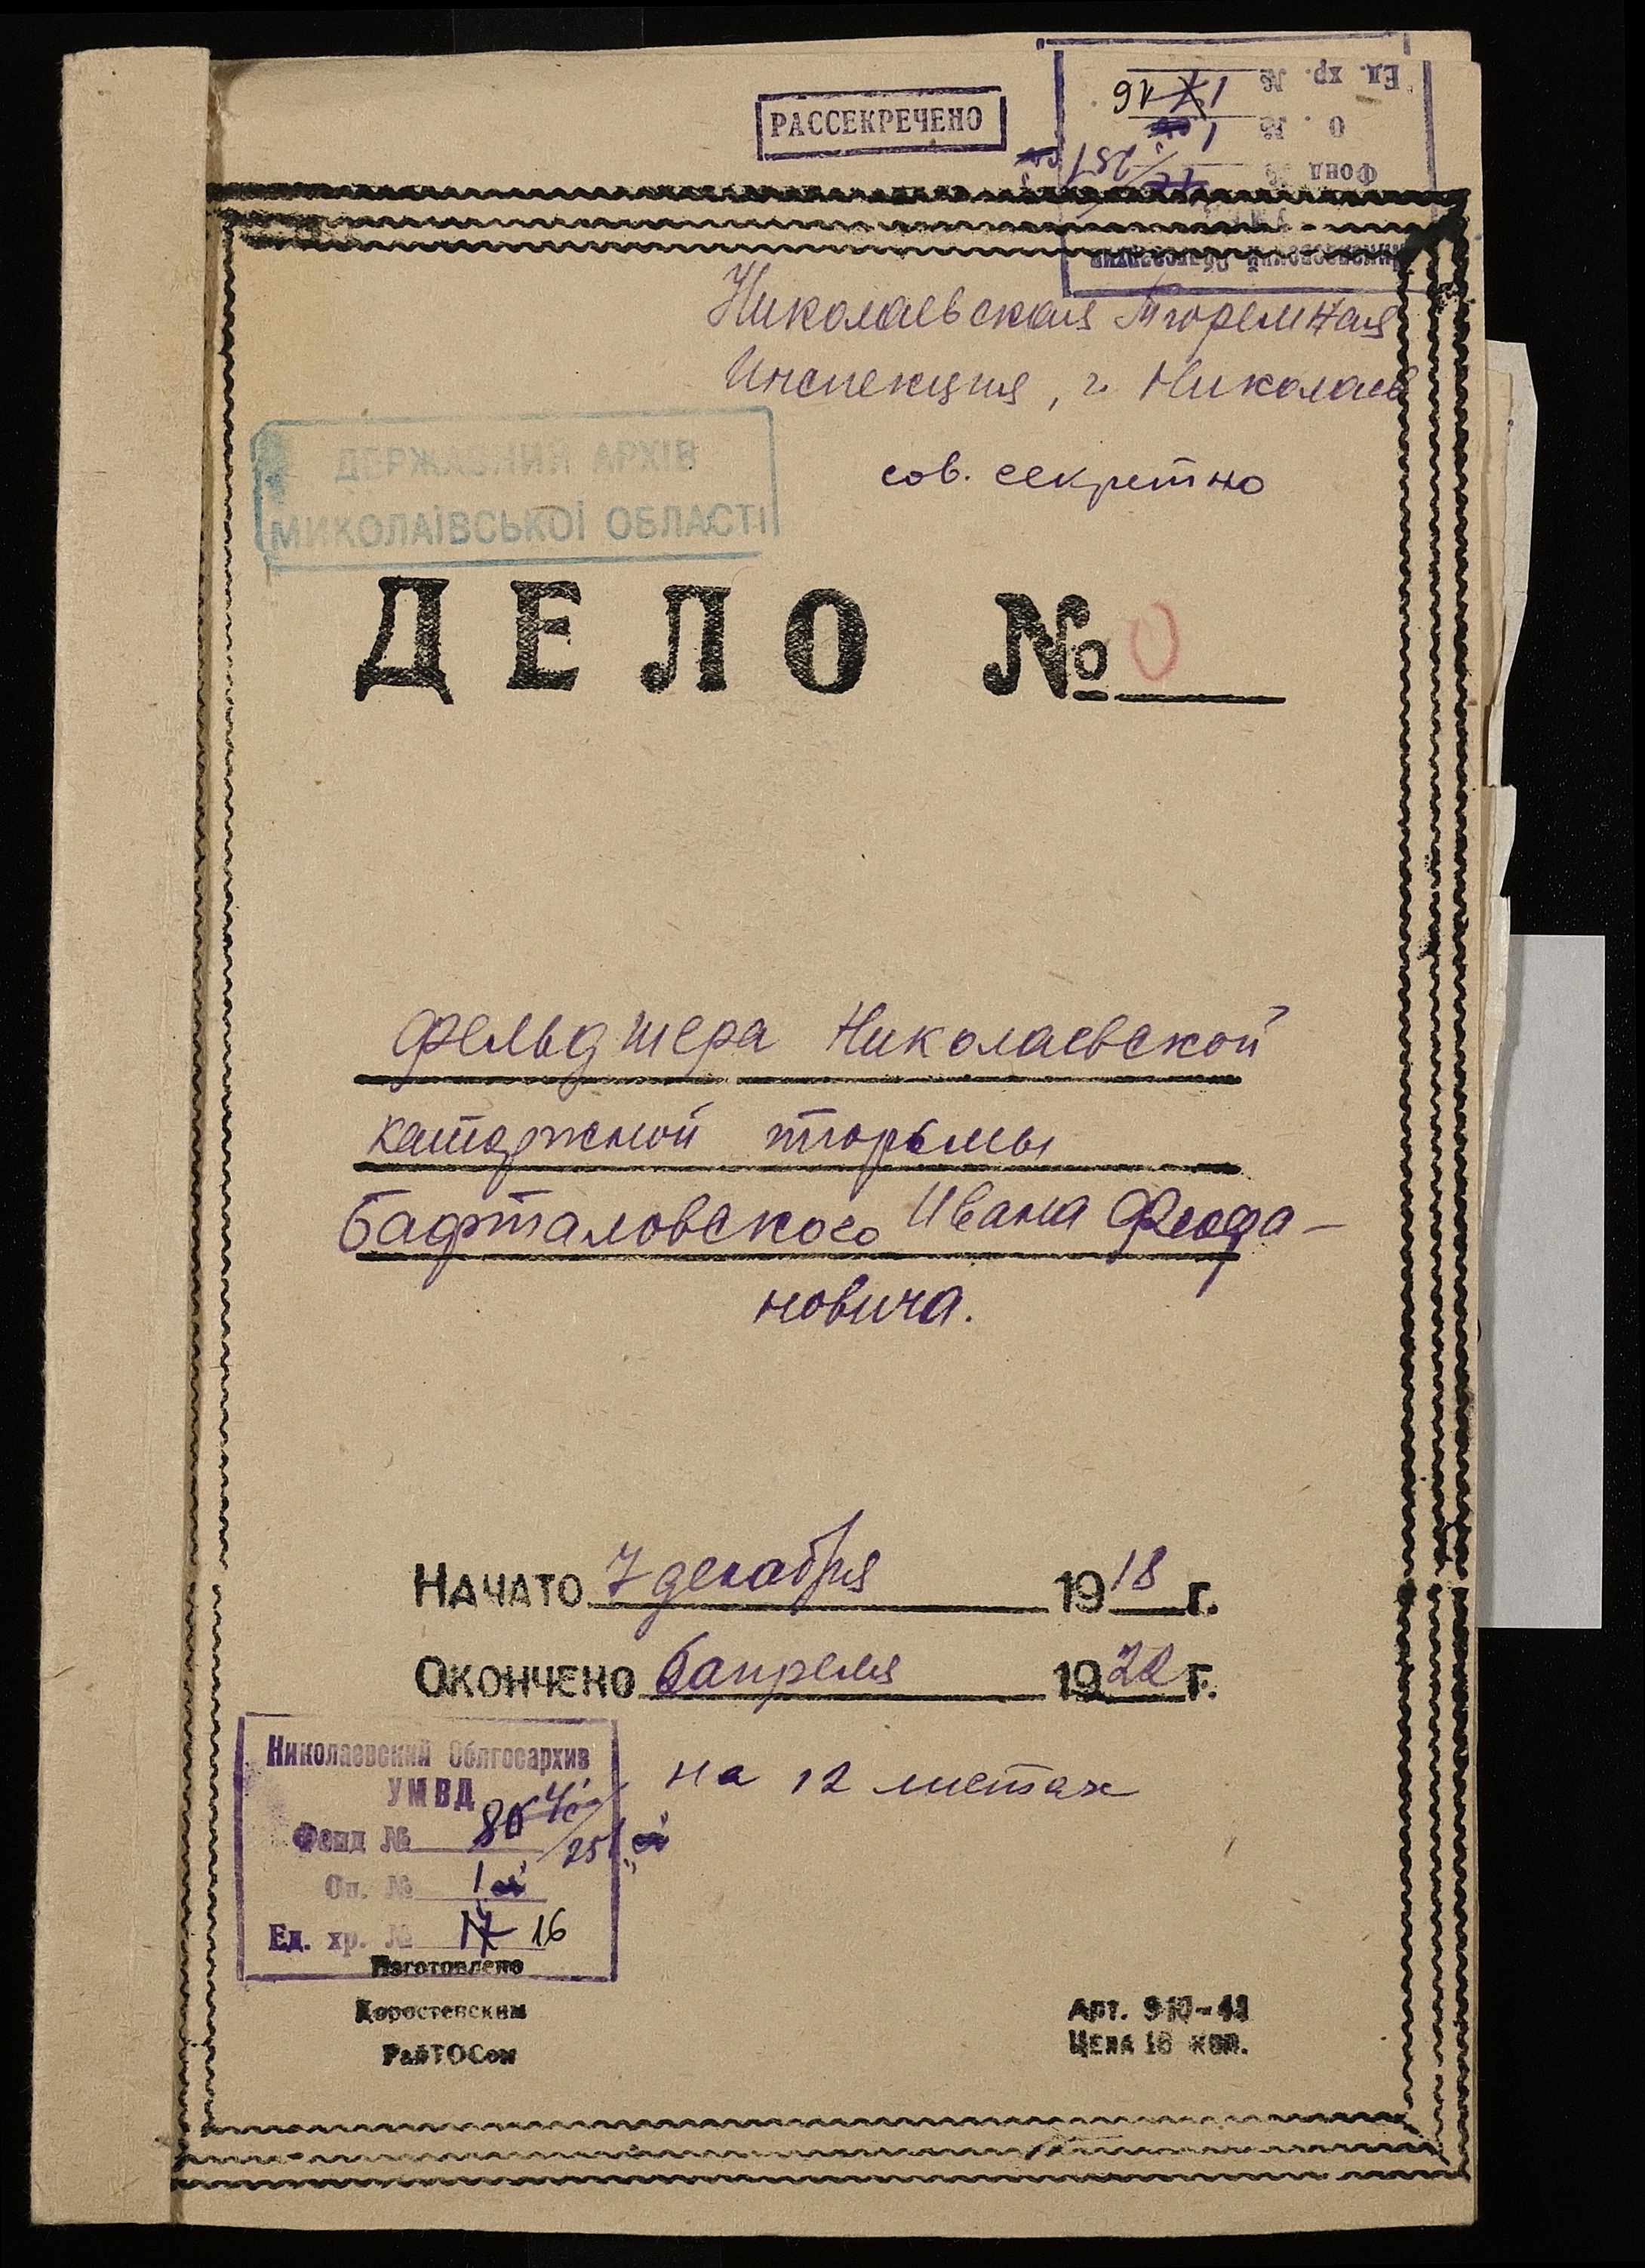 РАССЕКРЕЧЕНО
Ед. хр. № 17 16
О. № 1
Фонд № 251
Николаевский Облгосархив
Николаевская Тюремная
Инспекция, г. Николаев
сов. секретно
ДЕРЖАВНИЙ АРХІВ
МИКОЛАЇВСЬКОЇ ОБЛАСТІ
ДЕЛО № 0
фельдшера Николаевской
каторжной тюрьмы
Бафталовского Ивана Феофа-
новича.
НАЧАТО 7 декабря 1918 г.
ОКОНЧЕНО 6 апреля 1922 г.
Николаевский Облгосархив
УМВД
Фонд № 80 251
Оп. № 1
Ед. хр. № 17 16
на 12 листах
Изготовлено
Коростенским
РайТОСом
Арт. 910-43
Цена 18 коп.